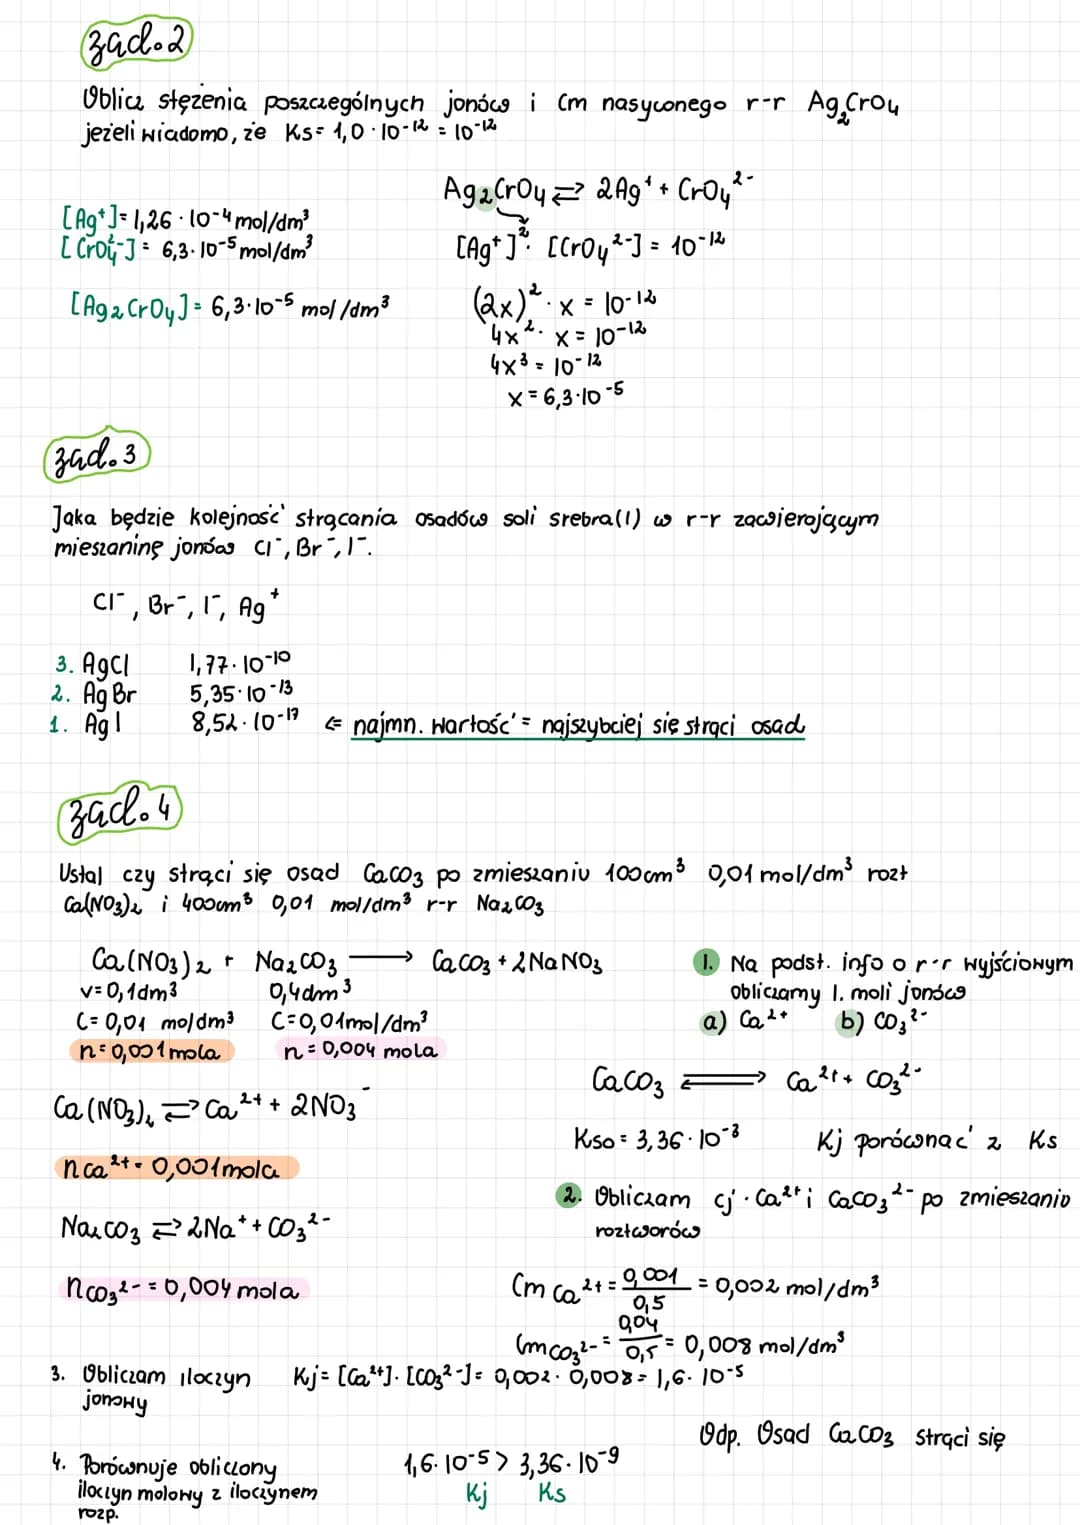 zad.2
Oblicz stężenia poszczególnych jonów i Cm nasyconego r-r Ag₂CrO₄
jeżeli wiadomo, że Ks= 1,0 · 10⁻¹² = 10⁻¹²
Ag₂CrO₄ ⇄ 2Ag⁺ + CrO₄²⁻
[Ag⁺]= 1,26 · 10⁻⁴ mol/dm³
[CrO₄²⁻] = 6,3 · 10⁻⁵ mol/dm³
[Ag⁺]² · [CrO₄²⁻] = 10⁻¹²
[Ag₂CrO₄] = 6,3·10⁻⁵ mol/dm³
(2x)² · x = 10⁻¹²
4x² · x = 10⁻¹²
4x³ = 10⁻¹²
x = 6,3·10⁻⁵
zad.3
Jaka będzie kolejność strącania osadów soli srebra(I) w r-r zawierającym
mieszaninę jonów Cl⁻, Br⁻, I⁻.
Cl⁻, Br⁻, I⁻, Ag⁺
3. AgCl 1,77 · 10⁻¹⁰
2. AgBr 5,35 · 10⁻¹³
1. AgI 8,52 · 10⁻¹⁷ ⇐ najmn. wartość = najszybciej się strąci osad
zad.4
Ustal czy strąci się osad CaCO₃ po zmieszaniu 100cm³ 0,01 mol/dm³ rozt
Ca(NO₃)₂ i 400cm³ 0,01 mol/dm³ r-r Na₂CO₃
Ca(NO₃)₂ + Na₂CO₃ ⟶ CaCO₃ + 2NaNO₃
v=0,1dm³ 0,4dm³
C= 0,01 mol dm³ C=0,01mol/dm³
n=0,001 mola n=0,004 mola
1. Na podst. info o r-r wyjściowym
obliczamy l. moli jonów
a) Ca²⁺ b) CO₃²⁻
CaCO₃ ⇄ Ca²⁺ + CO₃²⁻
Ca(NO₃)₂ ⇄ Ca²⁺ + 2NO₃⁻
Kso = 3,36 · 10⁻⁸ Kj porównać z Ks
nCa²⁺ = 0,001mola
2. Obliczam cj · Ca²⁺ i CaCO₃²⁻ po zmieszaniu
roztworów
Na₂CO₃ ⇄ 2Na⁺ + CO₃²⁻
nCO₃²⁻ = 0,004 mola
Cm Ca²⁺ = 0,001/0,5 = 0,002 mol/dm³
CmCO₃²⁻ = 0,04/0,5 = 0,008 mol/dm³
3. Obliczam iloczyn Kj = [Ca²⁺] · [CO₃²⁻] = 0,002 · 0,008 = 1,6 · 10⁻⁵
jonowy
Odp. Osad CaCO₃ strąci się
4. Porównuje obliczony 1,6 · 10⁻⁵ > 3,36 · 10⁻⁹
iloczyn molowy z iloczynem Kj Ks
rozp.